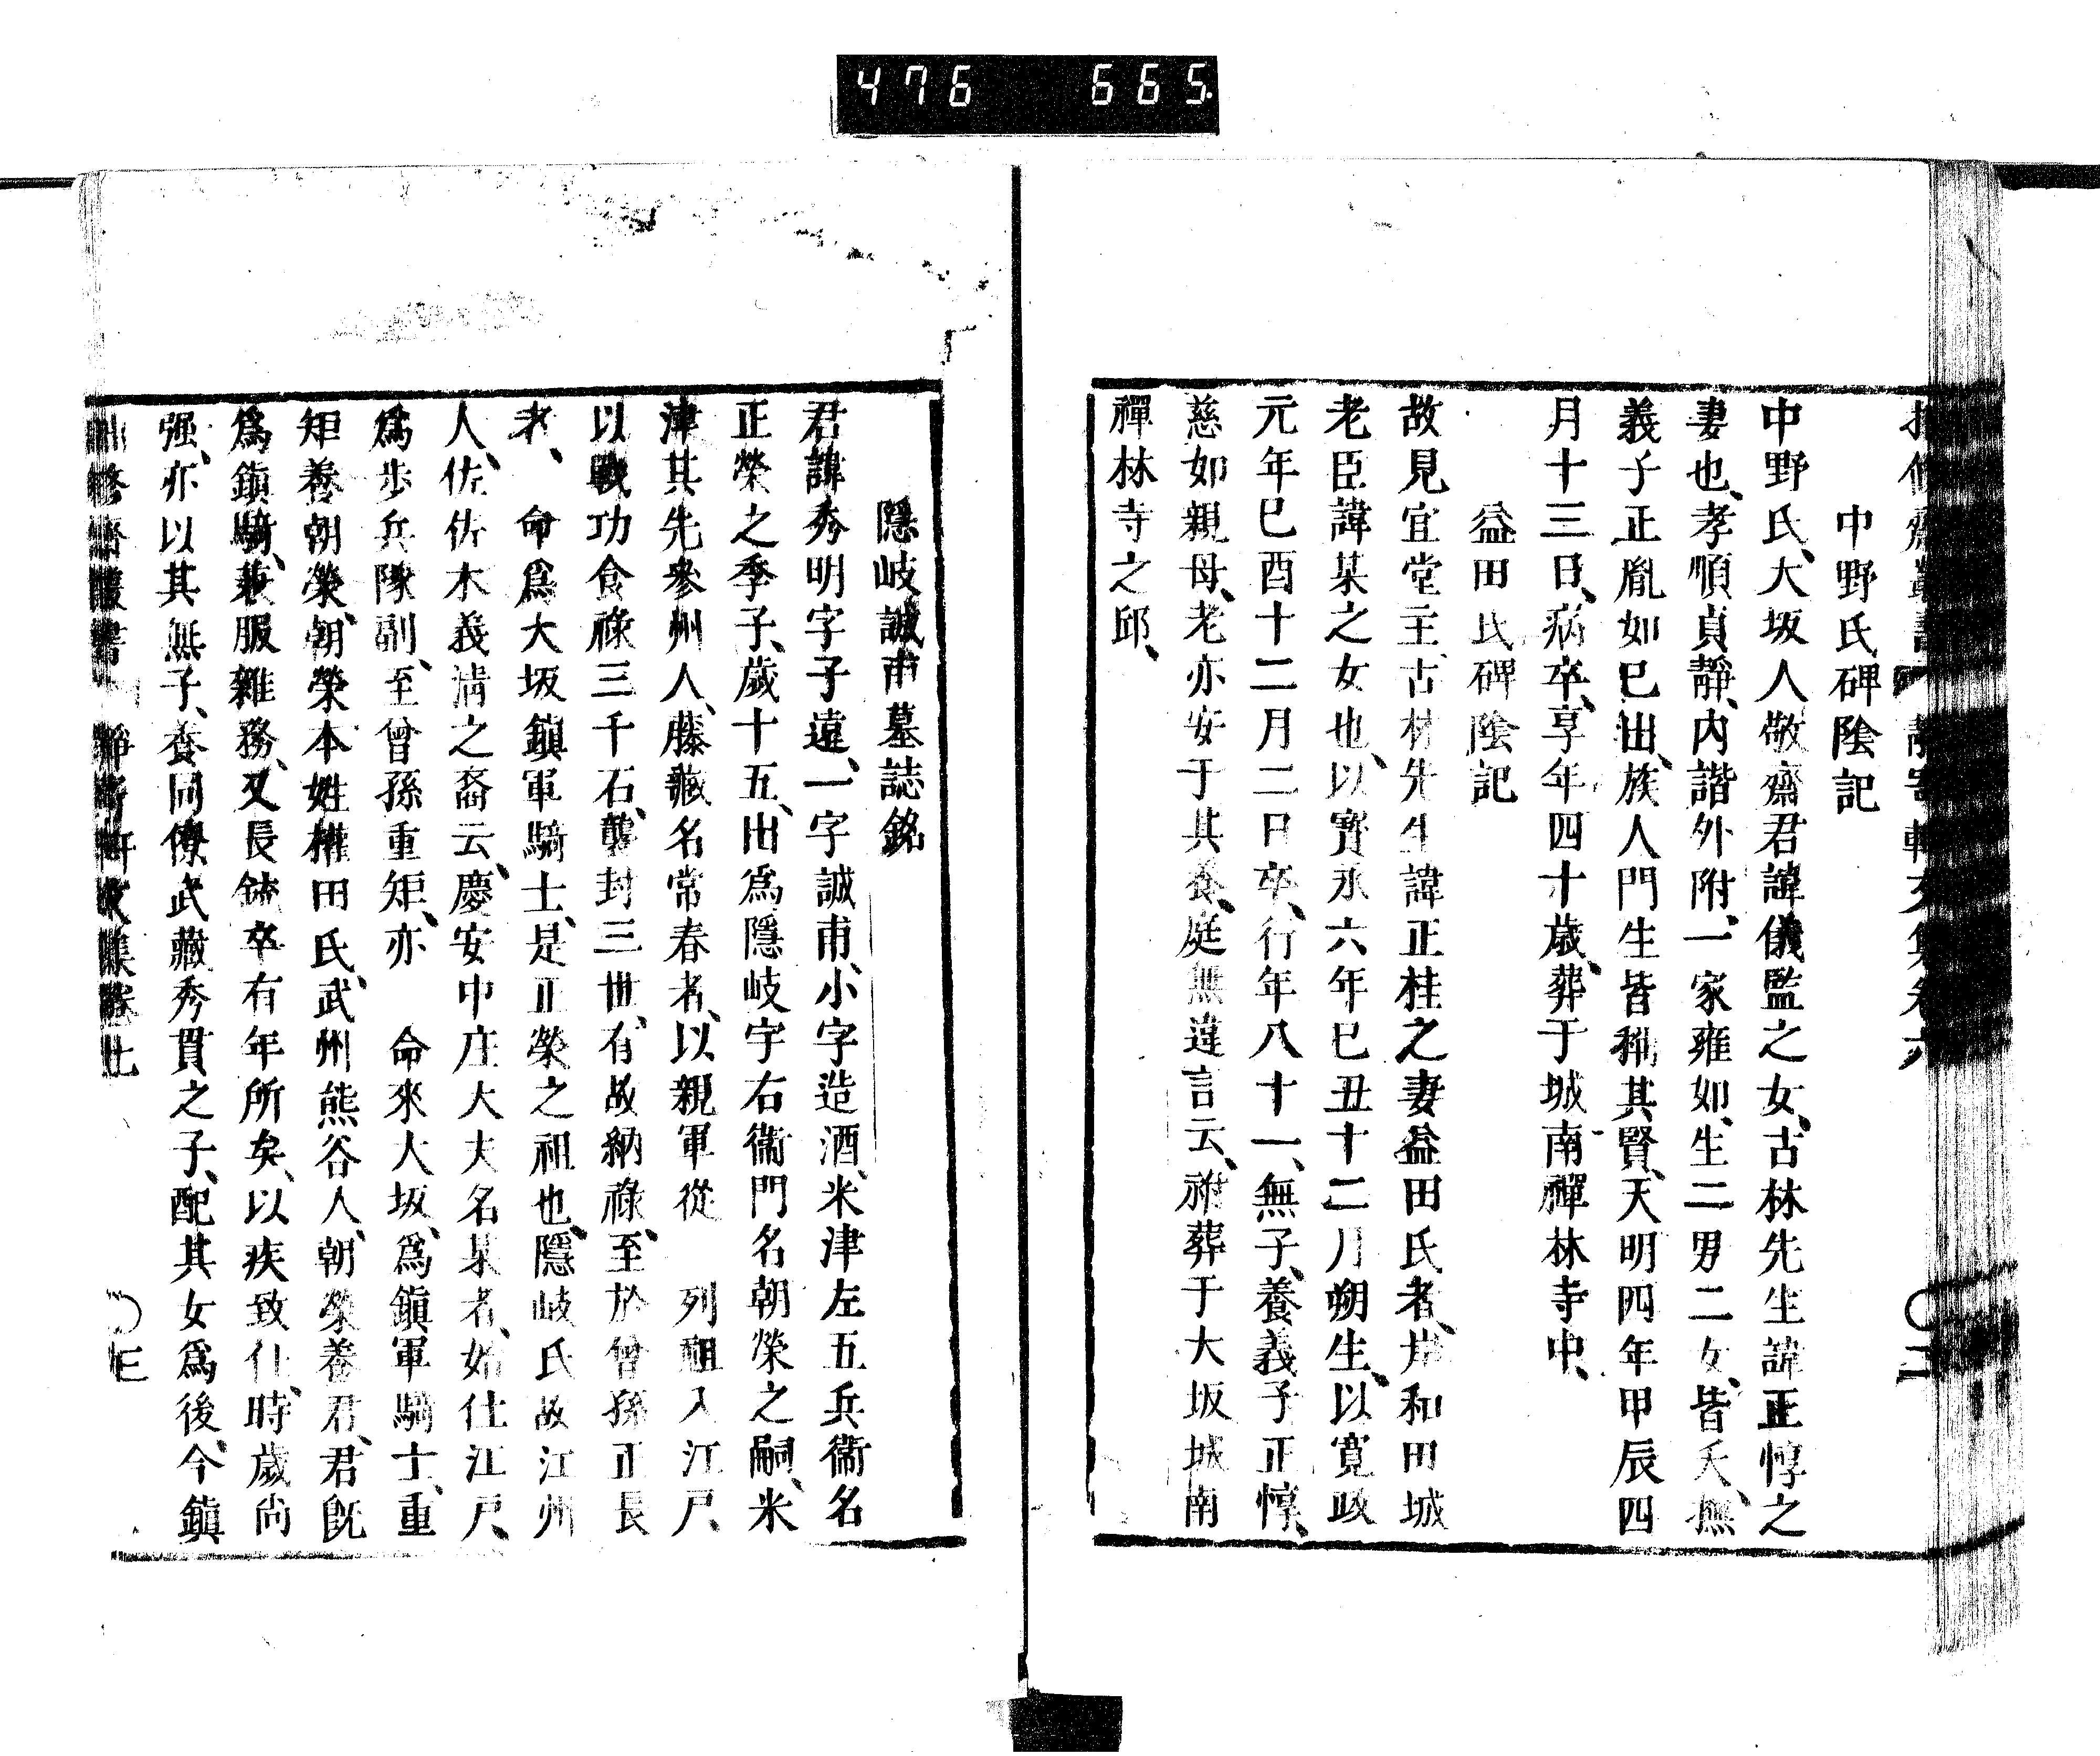 476 665.
中野氏碑陰記
中野氏、大坂人敬齋君諱儀監之女、古林先生諱正惇之
妻也、孝順貞靜、內諧外附、一家雍如、生二男二女、皆夭、撫
義子正胤如已出、族人門生皆稱其賢、天明四年甲辰四
月十三日、病卒、享年四十歲、葬于城南禪林寺中、
益田氏碑陰記
故見宜堂主古林先生諱正桂之妻益田氏者、岸和田城
老臣諱某之女也、以寶永六年已丑十二月朔生、以寬政
元年已酉十二月二日卒、行年八十一、無子、養義子正惇、
慈如親母、老亦安于其養、庭無違言云、祔葬于大坂城南
禪林寺之邱、
隱岐誠甫墓誌銘
君諱秀明字子遠、一字誠甫、小字造酒、米津左五兵衞名
正榮之季子、歲十五、出爲隱岐宇右衞門名朝榮之嗣、米
津其先參州人、藤藏名常春者、以親軍從 列祖入江戸、
以戰功食祿三千石、襲封三世、有故納祿、至於曾孫正長
者、 命爲大坂鎭軍騎士、是正榮之祖也、隱岐氏故江州
人、佐佐木義淸之裔云、慶安中庄大夫名某者、始仕江戸、
爲步兵隊副、至曾孫重矩、亦 命來大坂、爲鎭軍騎士、重
矩養朝榮、朝榮本姓權田氏、武州熊谷人、朝榮養君、君旣
爲鎭騎、兼服雜務、又長銃卒有年所矣、以疾致仕、時歲尙
强、亦以其無子、養同僚武藏秀貫之子、配其女爲後、今鎭